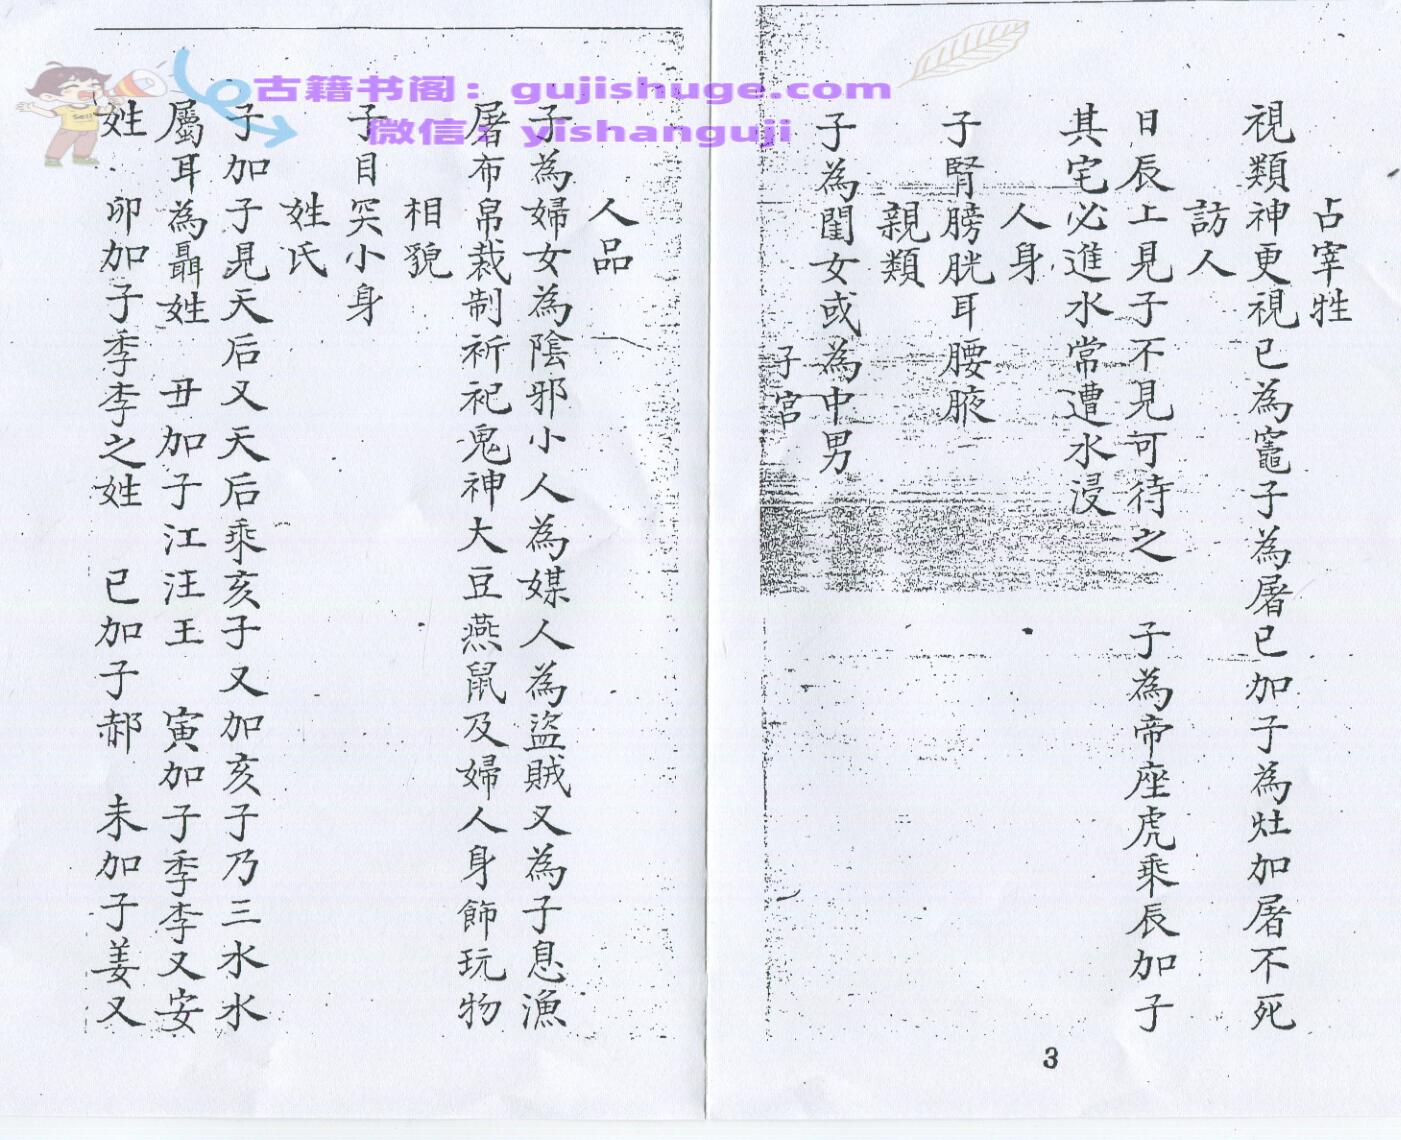 占宰牲
視類神更視已為竈子為屠巳加子為灶加屠不死
訪人
日辰上見子不見可待之 子為帝座虎乘辰加子
其宅必進水常遭水浸
人身
子腎膀胱耳腰腋
親類
子為閨女或為中男
子宮
3
人品
子為婦女為陰邪小人為媒人為盜賊又為子息漁
屠布帛裁制祈祀鬼神大豆燕鼠及婦人身飾玩物
相貌
子目突小身
姓氏
子加子見天后又天后乘亥子又加亥子乃三水水
屬耳為聶姓 丑加子江汪王 寅加子季李又安
姓 卯加子季李之姓 巳加子郝 未加子姜又
古籍书阁：gujishuge.com
微信：yishanguji